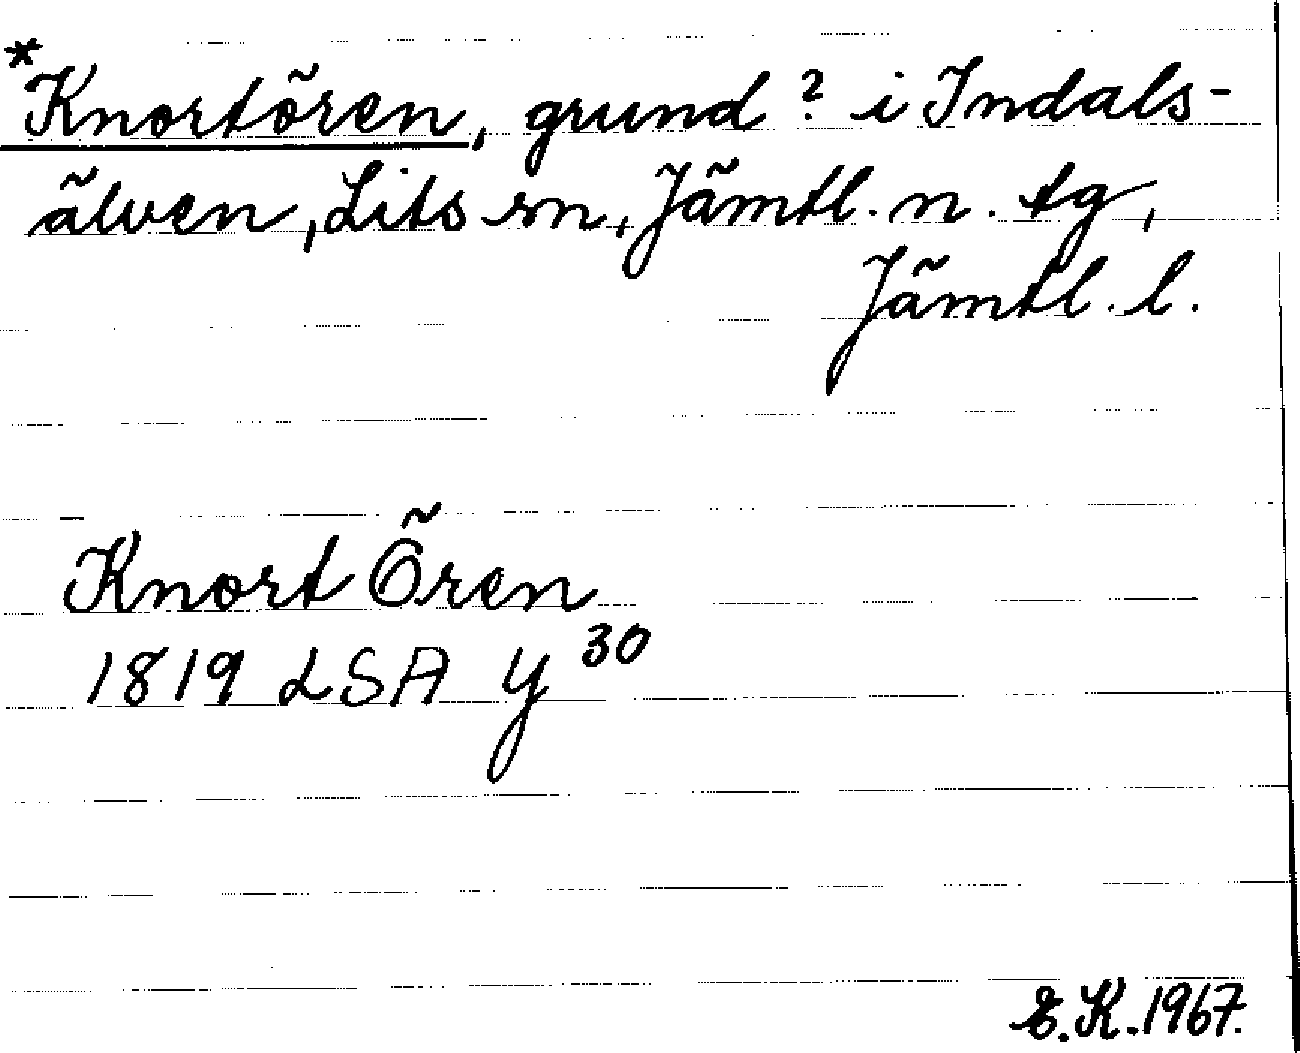 *Knortören, grund? i Indals-
älven, Lits sn, Jämtl. n. tg,
Jämtl. l.
Knort Ören
1819 LSA Y 30
E.K. 1967.